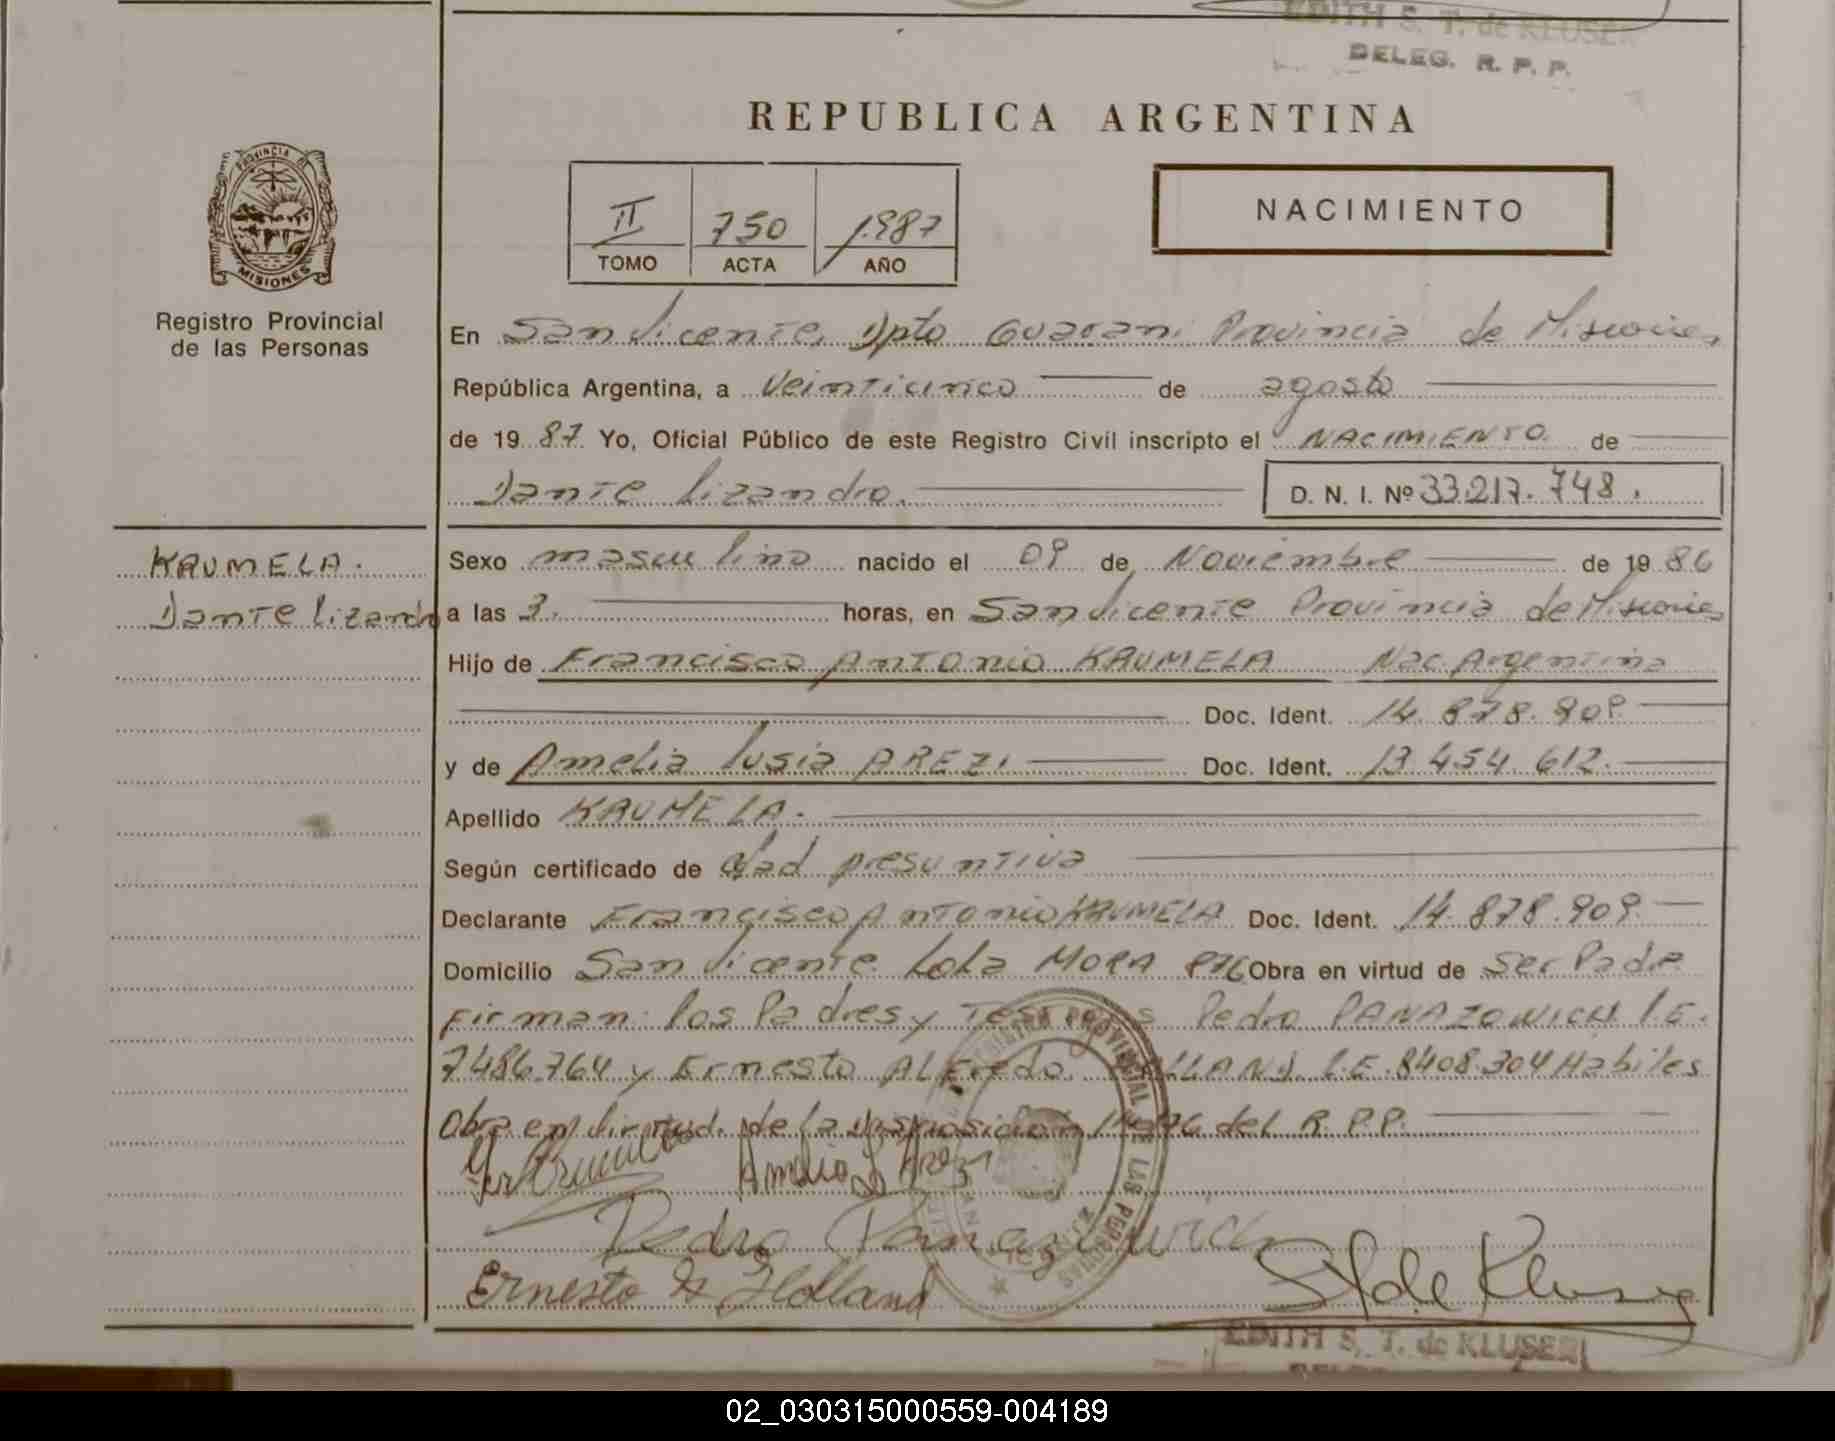 EDITH S. T. de KLUSER
DELEG. R. P. P.
REPUBLICA ARGENTINA
PROVINCIA DE
MISIONES
Registro Provincial
de las Personas
II 750 1987
TOMO ACTA AÑO
NACIMIENTO
En San Vicente, Dpto Guarani Provincia de Misiones
República Argentina, a Veinticinco de agosto
de 1987. Yo, Oficial Público de este Registro Civil inscripto el NACIMIENTO de
Dante Lizandro. D. N. I. Nº 33.217.748.
KRUMELA.
Dante Lizandro
Sexo masculino nacido el 09 de Noviembre de 1986
a las 3. horas, en San Vicente Provincia de Misiones
Hijo de Francisco Antonio KRUMELA Nac Argentina
Doc. Ident. 14.878.909.
y de Amelia Lusia AREZI Doc. Ident. 13.454.612.
Apellido KRUMELA.
Según certificado de edad presuntiva
Declarante Francisco Antonio KRUMELA Doc. Ident. 14.878.909.
Domicilio San Vicente Lola MORA 876 Obra en virtud de Ser Padre
Firman: los Padres y Testigos Pedro PANAZOWICH L.E.
7486.764 y Ernesto ALFredo L.E. 8408.304 Habiles
Obra en Virtud. de la Disposición del R.P.P.
Amelia L Arezi
Pedro Panazowich
Ernesto A Holland
REGISTRO PROVINCIAL DE LAS PERSONAS
S T de Kluser
EDITH S. T. de KLUSER
02_030315000559-004189